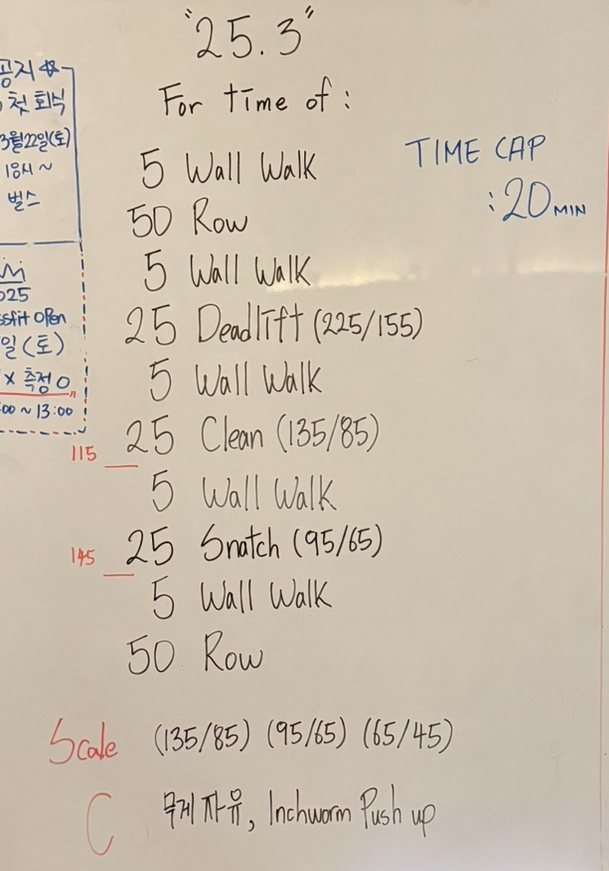 "25.3"
For time of :
5 Wall Walk
50 Row
5 Wall Walk
25 Deadlift (225/155)
5 Wall Walk
115 25 Clean (135/85)
5 Wall Walk
145 25 Snatch (95/65)
5 Wall Walk
50 Row
TIME CAP
: 20 MIN
Scale (135/85) (95/65) (65/45)
C 무게 자유, Inchworm Push up
공지
첫 회식
3월22일(토)
18시~
벌스
025
ssfit open
일(토)
x 측정 O
:00 ~ 13:00